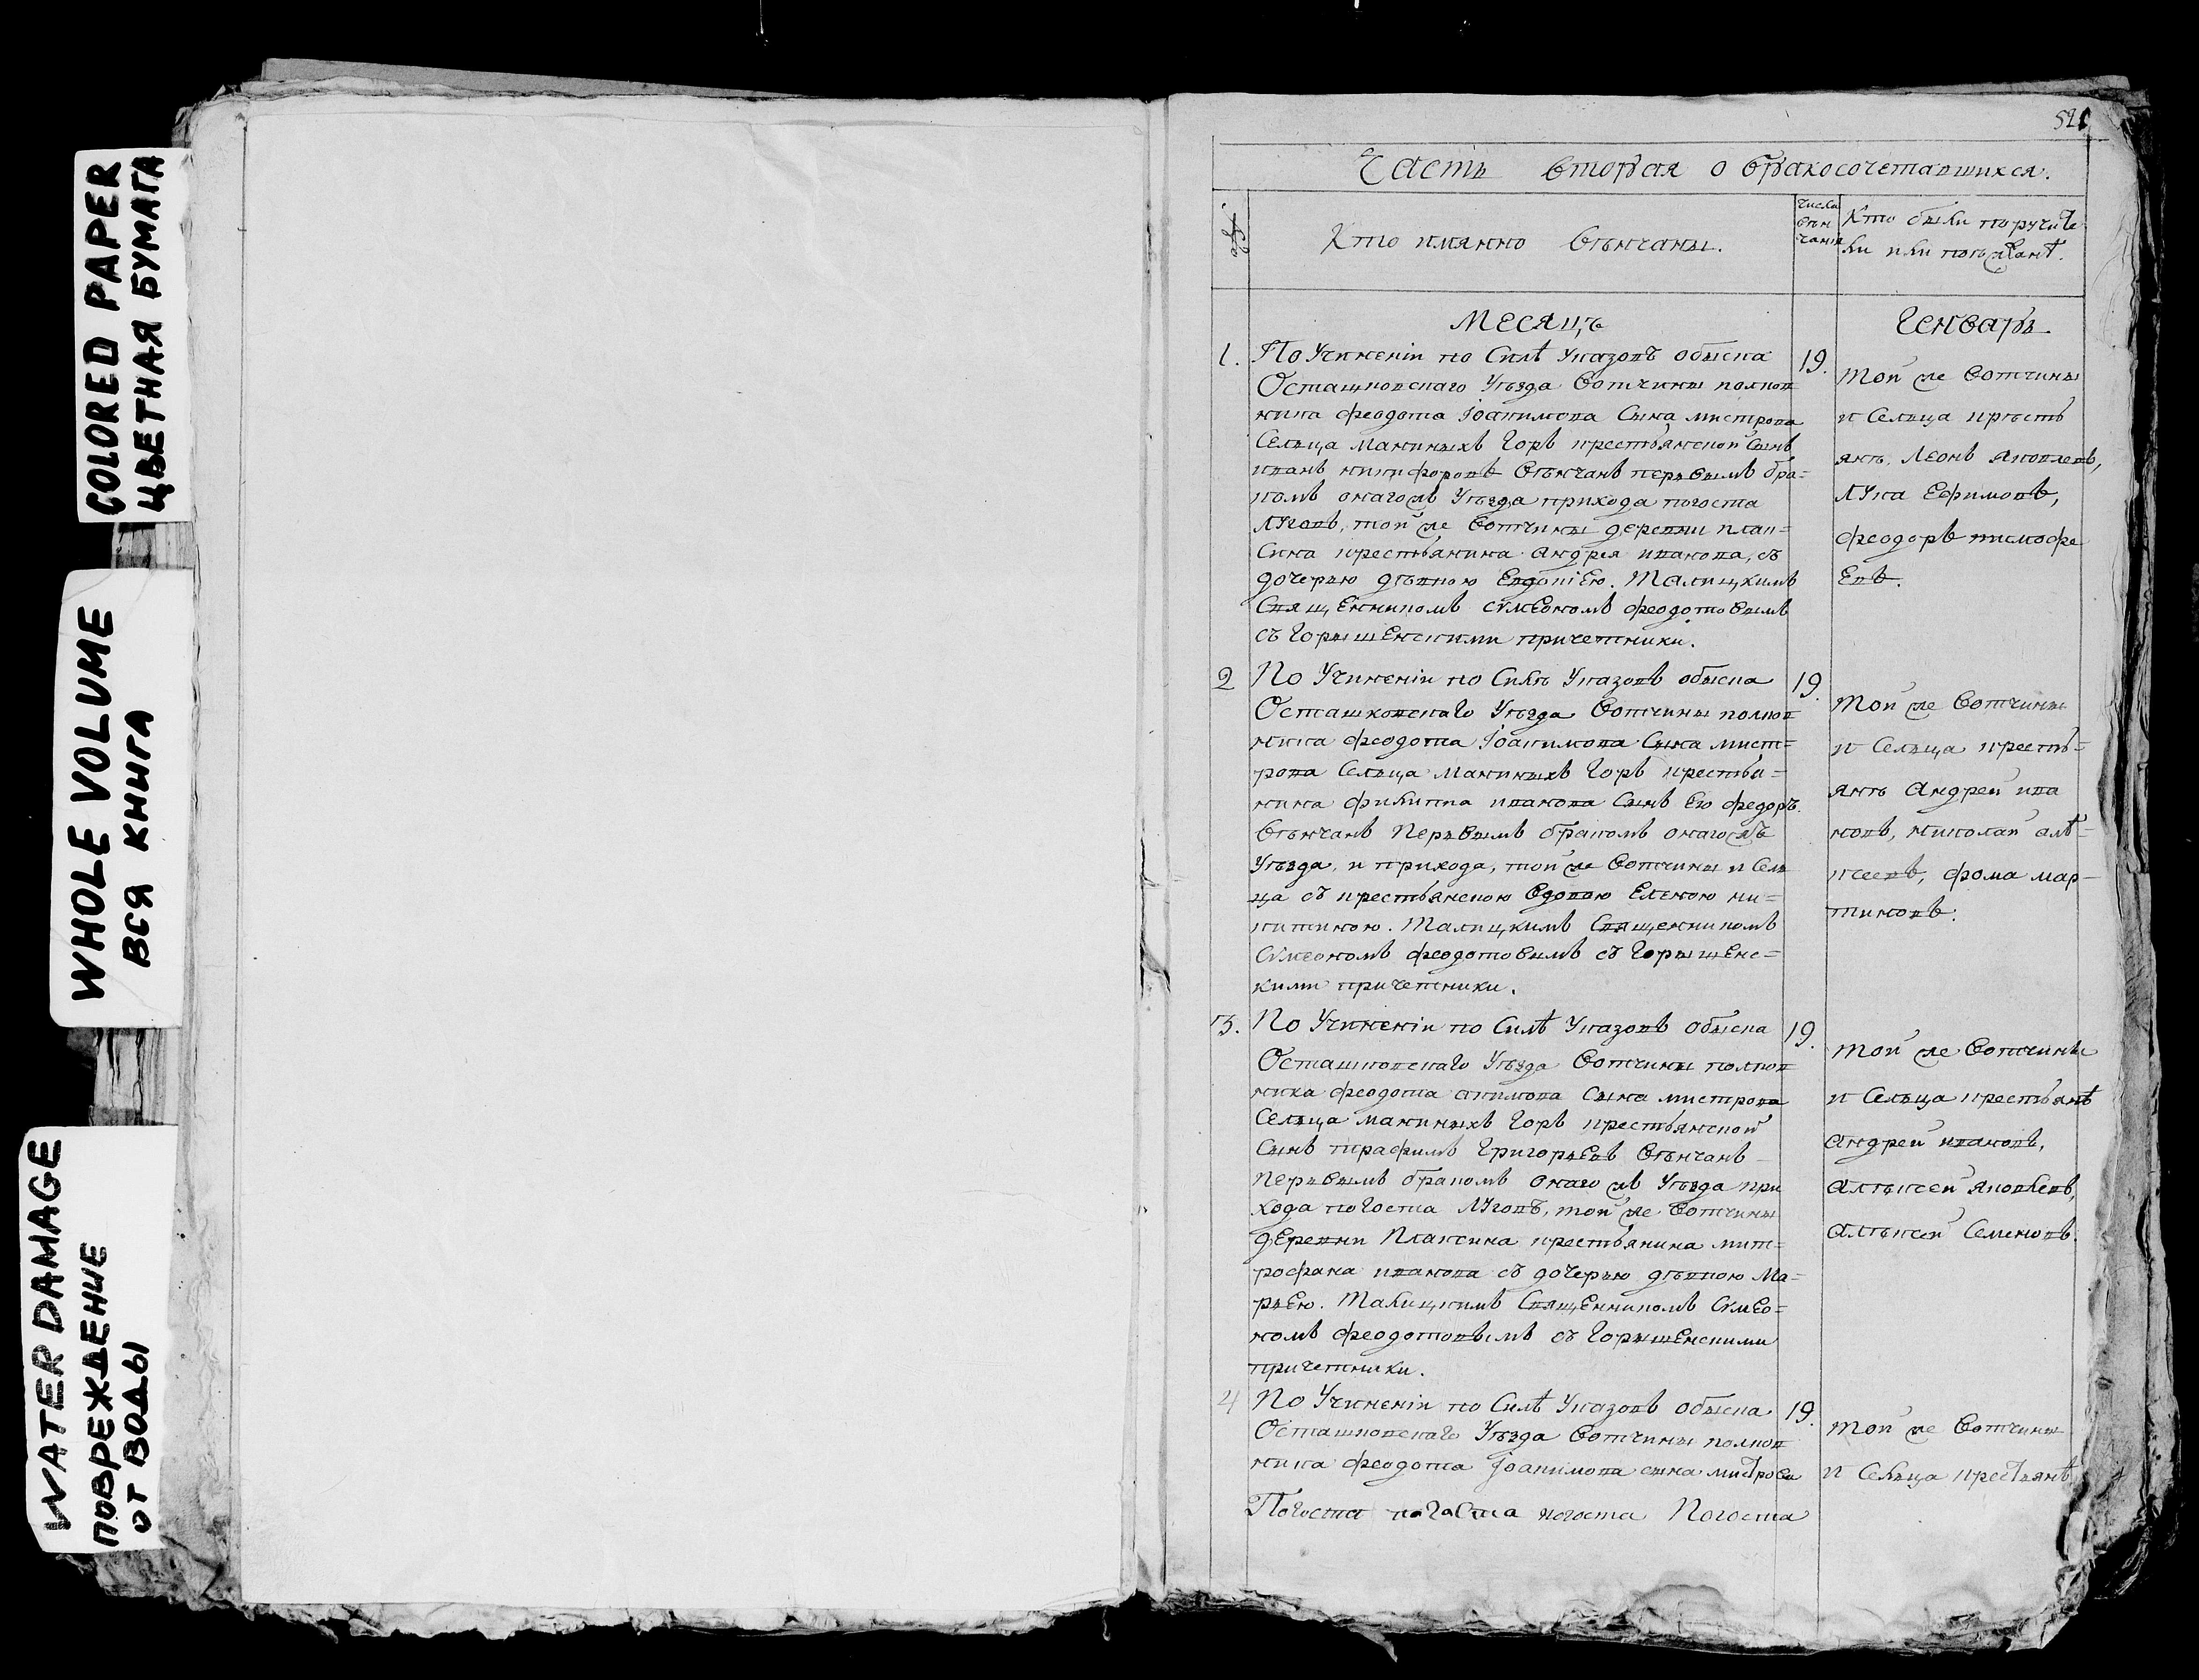 COLORED PAPER
ЦВЕТНАЯ БУМАГА
WHOLE VOLUME
ВСЯ КНИГА
WATER DAMAGE
ПОВРЕЖДЕНИЕ
ОТ ВОДЫ
521
Часть вторая о бракосочетавшихся.
№
Кто имянно вѣнчаны.
числа
вѣн
чанія
Кто были поручите
ли или поѣзжанѣ.
Месяцъ
Генварь
1. По Учиненіи по Силѣ Указовъ обыска
Осташковскаго Уѣзда вотчины полков
ника феодота Іоакимова Сына мистрова
Сельца Маниныхъ Горъ крестьянской Сынъ
иванъ никифоровъ вѣнчанъ первымъ бра=
комъ онагожъ Уѣзда прихода погоста
Луговъ, той же вотчины деревни плак=
сина крестьянина андрея иванова, съ
дочерью дѣвкою Евдокіею. Талицкимъ
Священникомъ симеономъ феодотовымъ
съ Горышенскими причетники.
19.
той же вотчины
и Сельца кресть
янѣ. Леонъ яковлевъ,
Лука Ефимовъ,
феодоръ тимофе
евъ.
2 По Учиненіи по Силѣ Указовъ обыска
Осташковскаго Уѣзда вотчины полков
ника феодота Іоакимова Сына мист=
рова Сельца Маниныхъ Горъ крестья=
нина филиппа иванова Сынъ Его федоръ.
вѣнчанъ первымъ бракомъ онагожъ
Уѣзда, и прихода, той же вотчины и Сель
ца съ крестьянскою вдовою Еленою ни=
китиною. Талицкимъ Священникомъ
Симеономъ феодотовымъ съ Горышенс=
кими причетники.
19.
той же вотчины
и Сельца кресть=
янѣ андрей ива
новъ, николай алѣ=
ксеевъ, фома мар-
тиновъ.
3. По Учиненіи по Силѣ Указовъ обыска
Осташковскаго Уѣзда вотчины полков
ника феодота акимова Сына мистрова
Сельца Маниныхъ Горъ крестьянской
Сынъ Григорьевъ вѣнчанъ
первымъ бракомъ онаго жъ Уѣзда при
хода погоста Луговъ, той же вотчины
деревни Плаксина крестьянина мит=
рофана иванова съ дочерью дѣвкою Ма=
рьею. Талицкимъ Священникомъ Симео=
номъ феодотовымъ съ Горышенскими
причетники.
19.
той же вотчины
и Сельца крестьянѣ
андрей ивановъ,
алѣксей яковлевъ,
алѣксей Семеновъ.
4 По Учиненіи по Силѣ Указовъ обыска
Осташковскаго Уѣзда вотчины полков
ника феодота Іоакимова сына мистрова
19.
той же вотчины
и Сельца крестьянѣ
Погоста погоста погоста Погоста